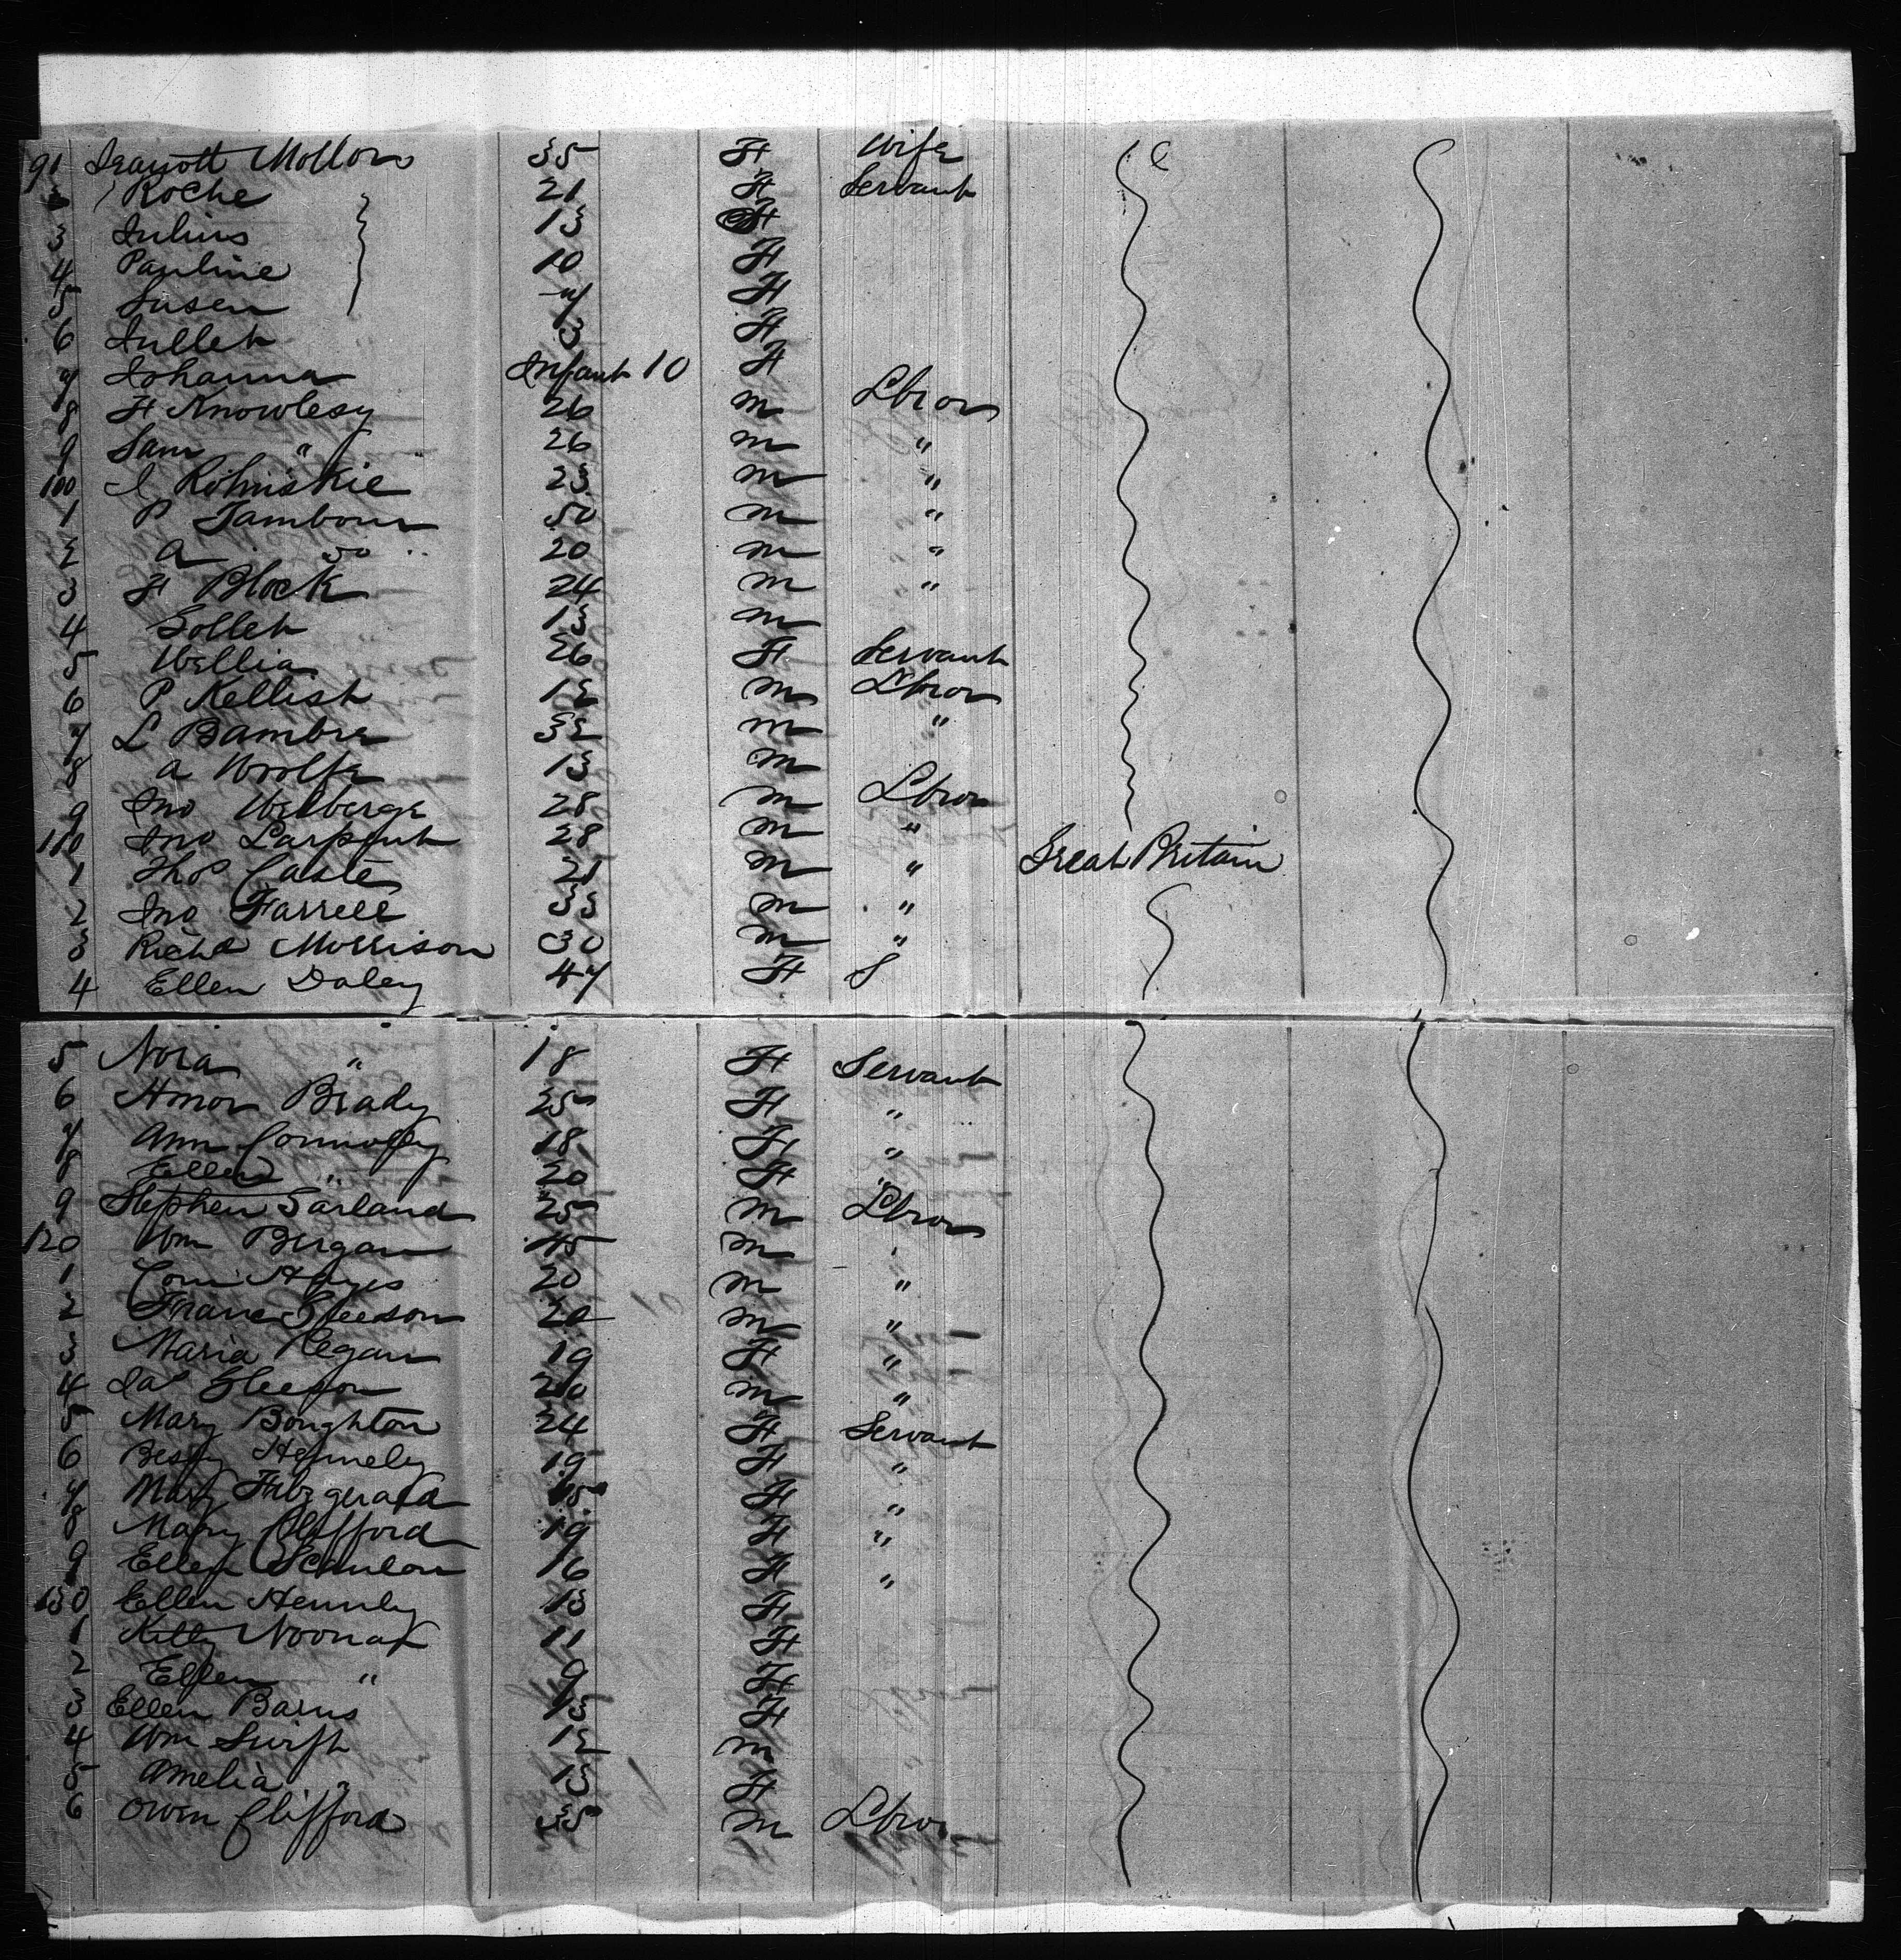 91 Mollon 35 F Wife
2 Roche 21 F Servant
3 Julius 13 F
4 Pauline 10 F
5 Susen 7 F
6 Jullet 3 F
7 Johanna Infant 10 F
8 H Knowlesy 26 m Lbror
9 Sam " 26 m "
100 Rohmiskie 23 m "
1 P Tambour 50 m "
2 A do 20 m "
3 H Block 24 m "
4 Gollet 13 m
5 Wellia 26 F Servant
6 P Kellish 12 m Lbror
7 L Bambre 32 m "
8 A Woolfe 13 m
9 Jno Welberge 28 m Lbror
110 Jno Larpent 28 m "
1 Thos Caste 21 m " Great Britain
2 Jno Farrell 33 m "
3 Richd Morrison 30 m "
4 Ellen Daley 47 F S
5 Nora " 18 F Servant
6 Honor Brady 25 F "
7 Ann Connolly 18 F "
8 Ellen " 20 F "
9 Stephen Garland 25 m Lbror
120 Wm Bergan 45 m "
1 Corn Hayes 20 m "
2 Gleeson 20 m "
3 Maria Regan 19 F "
4 Jas Gleeson 20 m "
5 Mary Boughton 24 F Servant
6 Bessy Hennely 19 F "
7 Mary Fitzgerald 15 F "
8 Mary Clifford 19 F "
9 Ellen Scanlon 16 F "
130 Ellen Hennly 13 F
1 Kitty Noonan 11 F
2 Ellen " 9 F
3 Ellen Barns 13 F
4 Wm Swift 12 m
5 Amelia " F
6 Owen Clifford 35 m Lbror